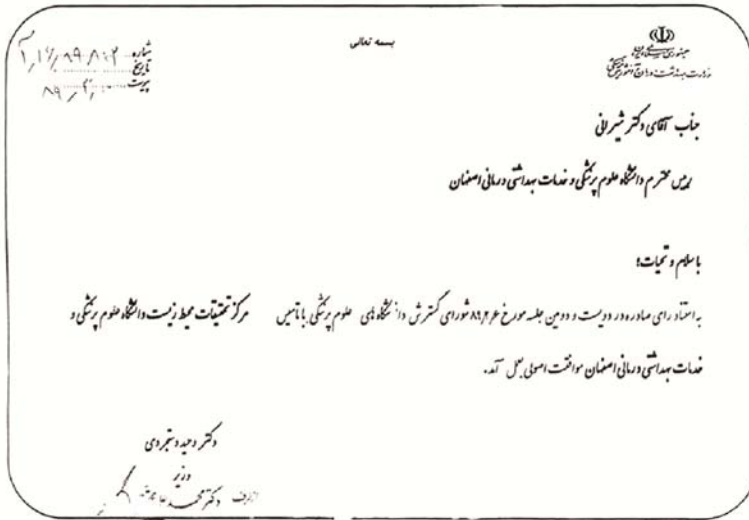 بسمه تعالی
جمهوری اسلامی ایران
وزارت بهداشت، درمان و آموزش پزشکی
شماره
تاریخ
پیوست
جناب آقای دکتر شیرانی
رئیس محترم دانشگاه علوم پزشکی و خدمات بهداشتی درمانی اصفهان
با سلام و تحیات؛
به استناد رای صادره در دویست و دومین جلسه مورخ شورای گسترش دانشگاه های علوم پزشکی با تأسیس مرکز تحقیقات محیط زیست دانشگاه علوم پزشکی و
خدمات بهداشتی درمانی اصفهان موافقت اصولی بعمل آمد.
دکتر وحید دستجردی
وزیر
از طرف دکتر محمد